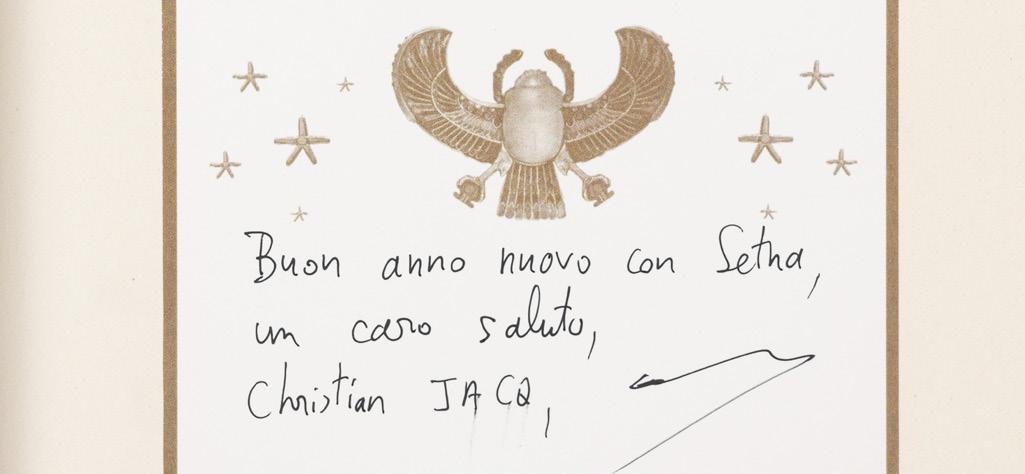 Buon anno nuovo con Setna,
un caro saluto,
Christian JACQ,